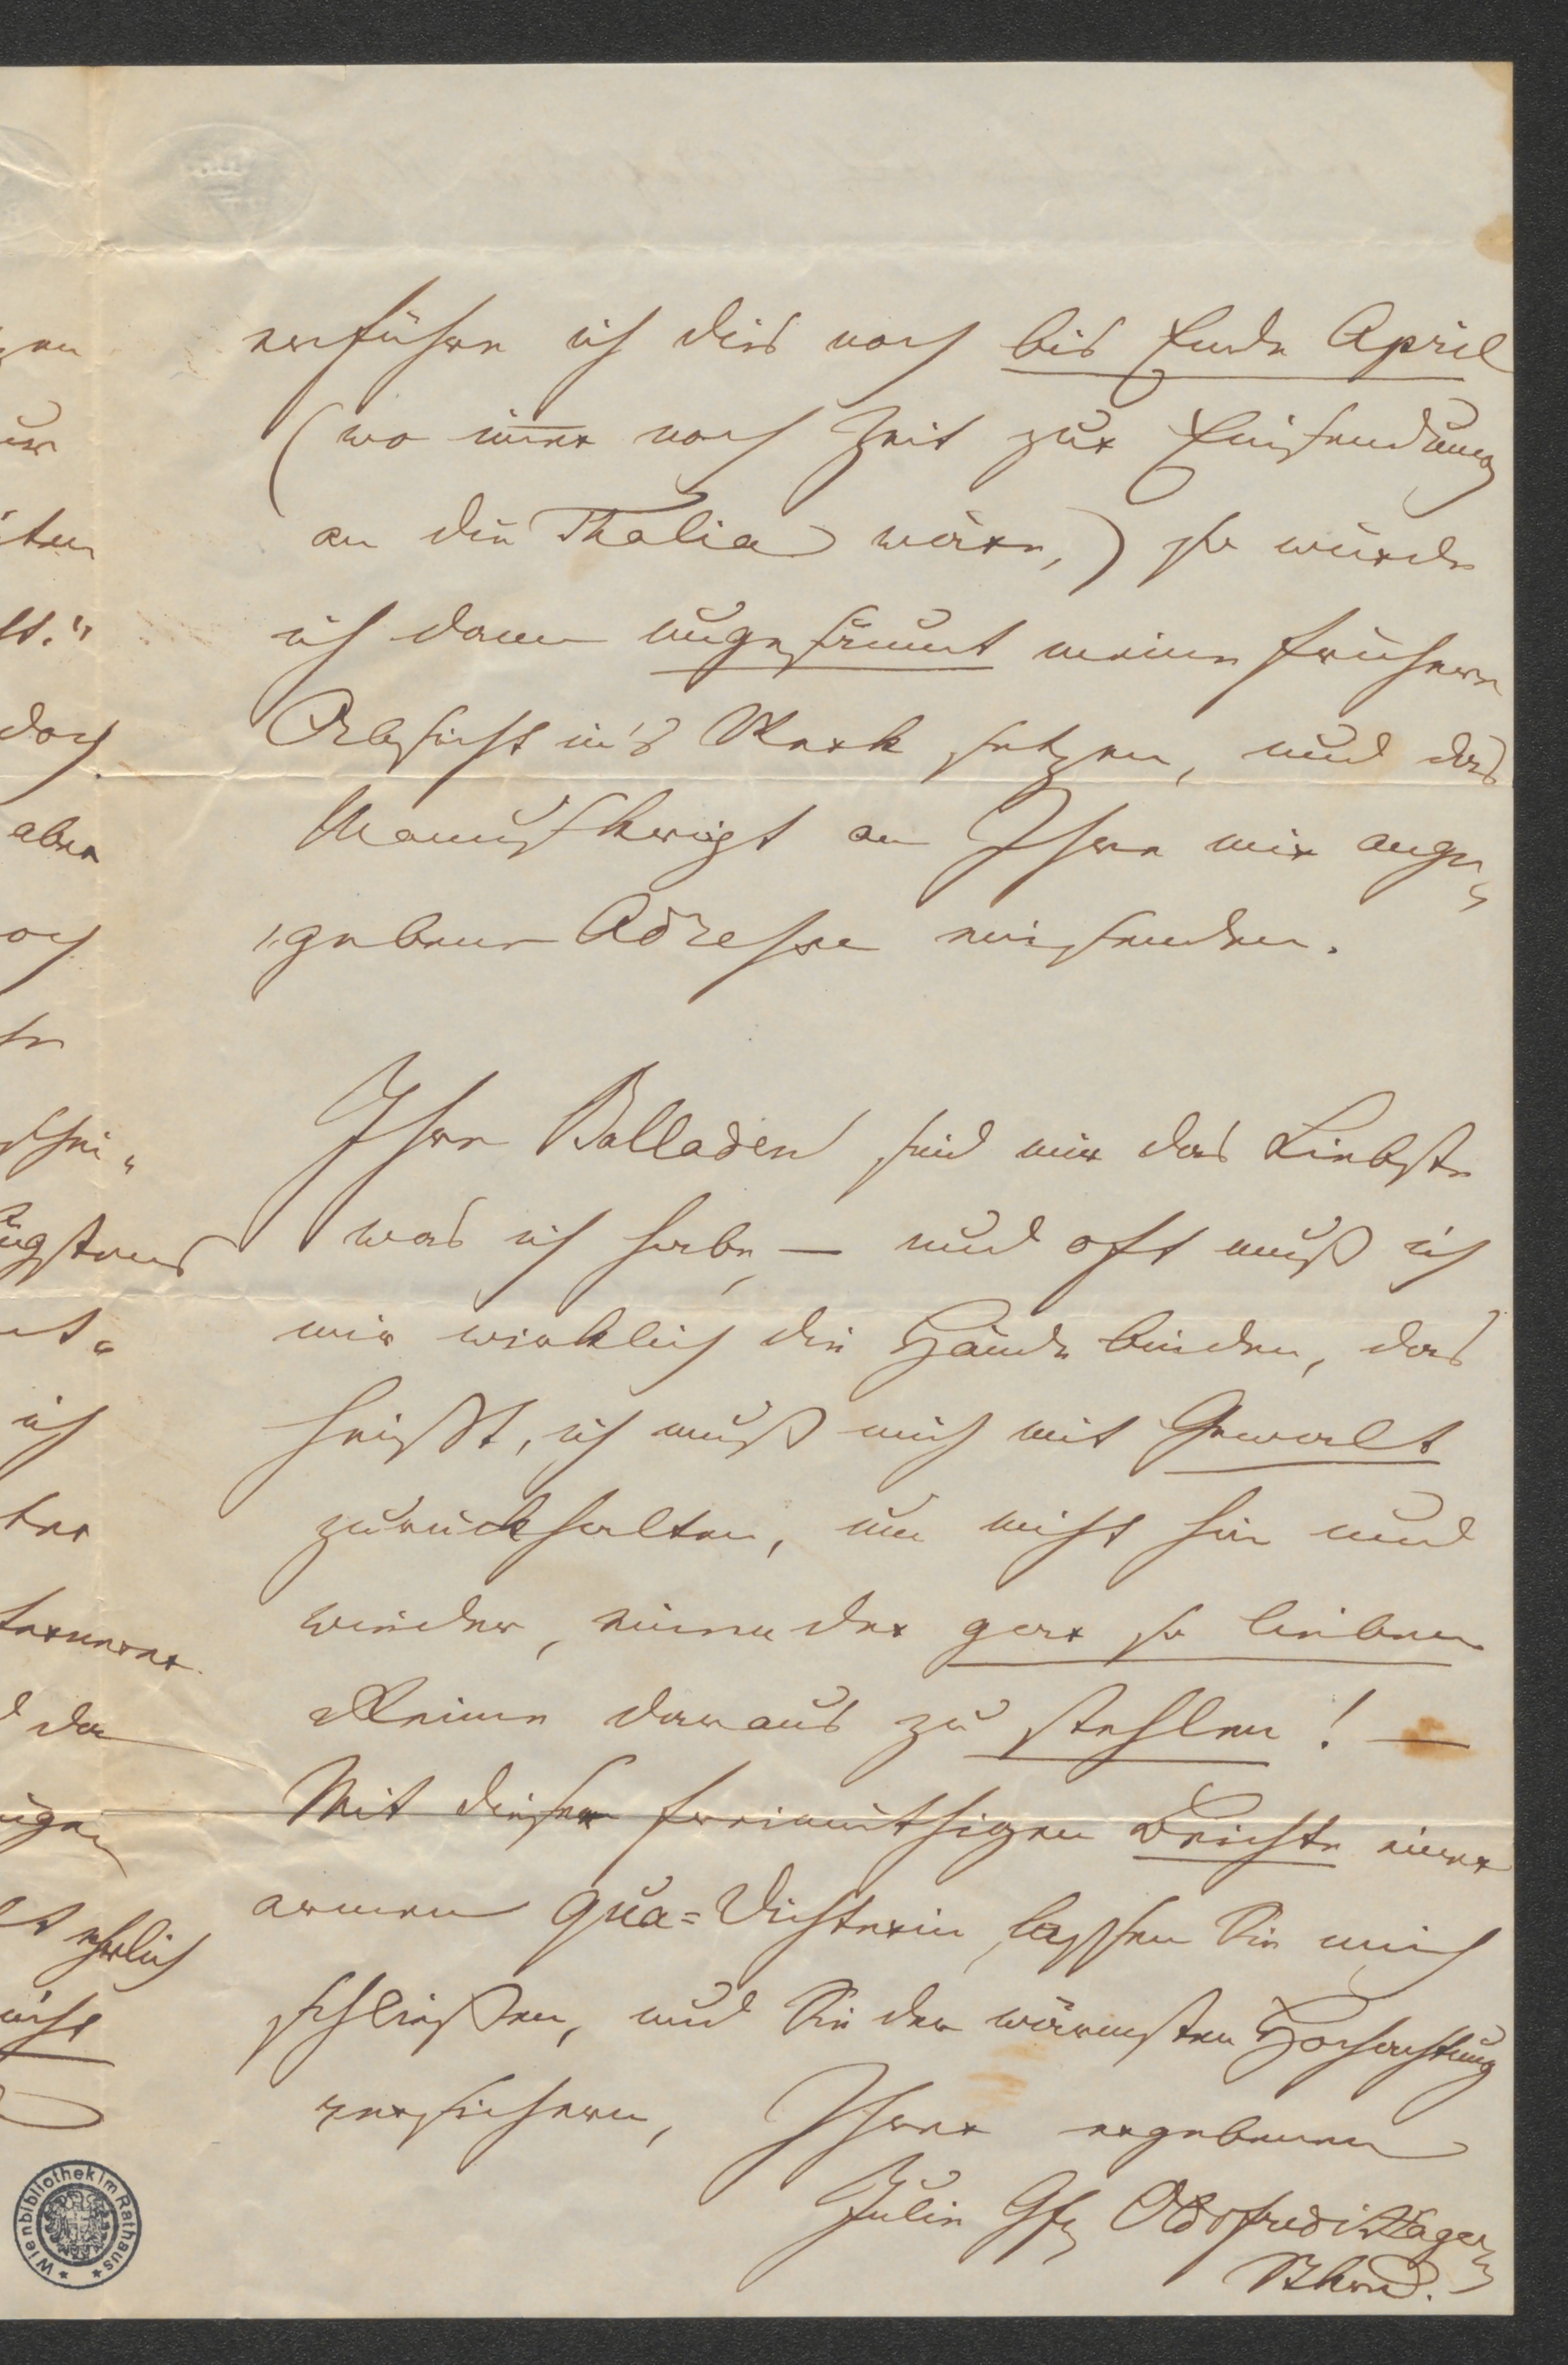 erführe ich dies noch bis Ende April
(wo im̅er noch Zeit zur Einsendung
an die Thalia wäre,) so würde
ich dann ungesäumt meine frühere
Absicht in's Werk setzen, und das
Manuskript an Ihre mir ange-
gebene Adresse einsenden.
Ihre Balladen sind mir das Liebste
was ich habe, — und oft muß ich
mir wirklich die Hände binden, das
heißt, ich muß mich mit Gewalt
zurückhalten, um nicht hin und
wieder, einen der gar so lieben
Reime daraus zu stehlen! —
Mit dieser freimüthigen Beichte einer
armen qua=Dichterin, lassen Sie mich
schließen, und Sie der wärmsten Hochachtung
versichern, Ihrer ergebenen
Julie Gfn Oldofredi Hager
zen
ten
doch
aber
och
schei„
ich
ter
da
ehrlich
nicht
Wienbibliothek im Rathaus